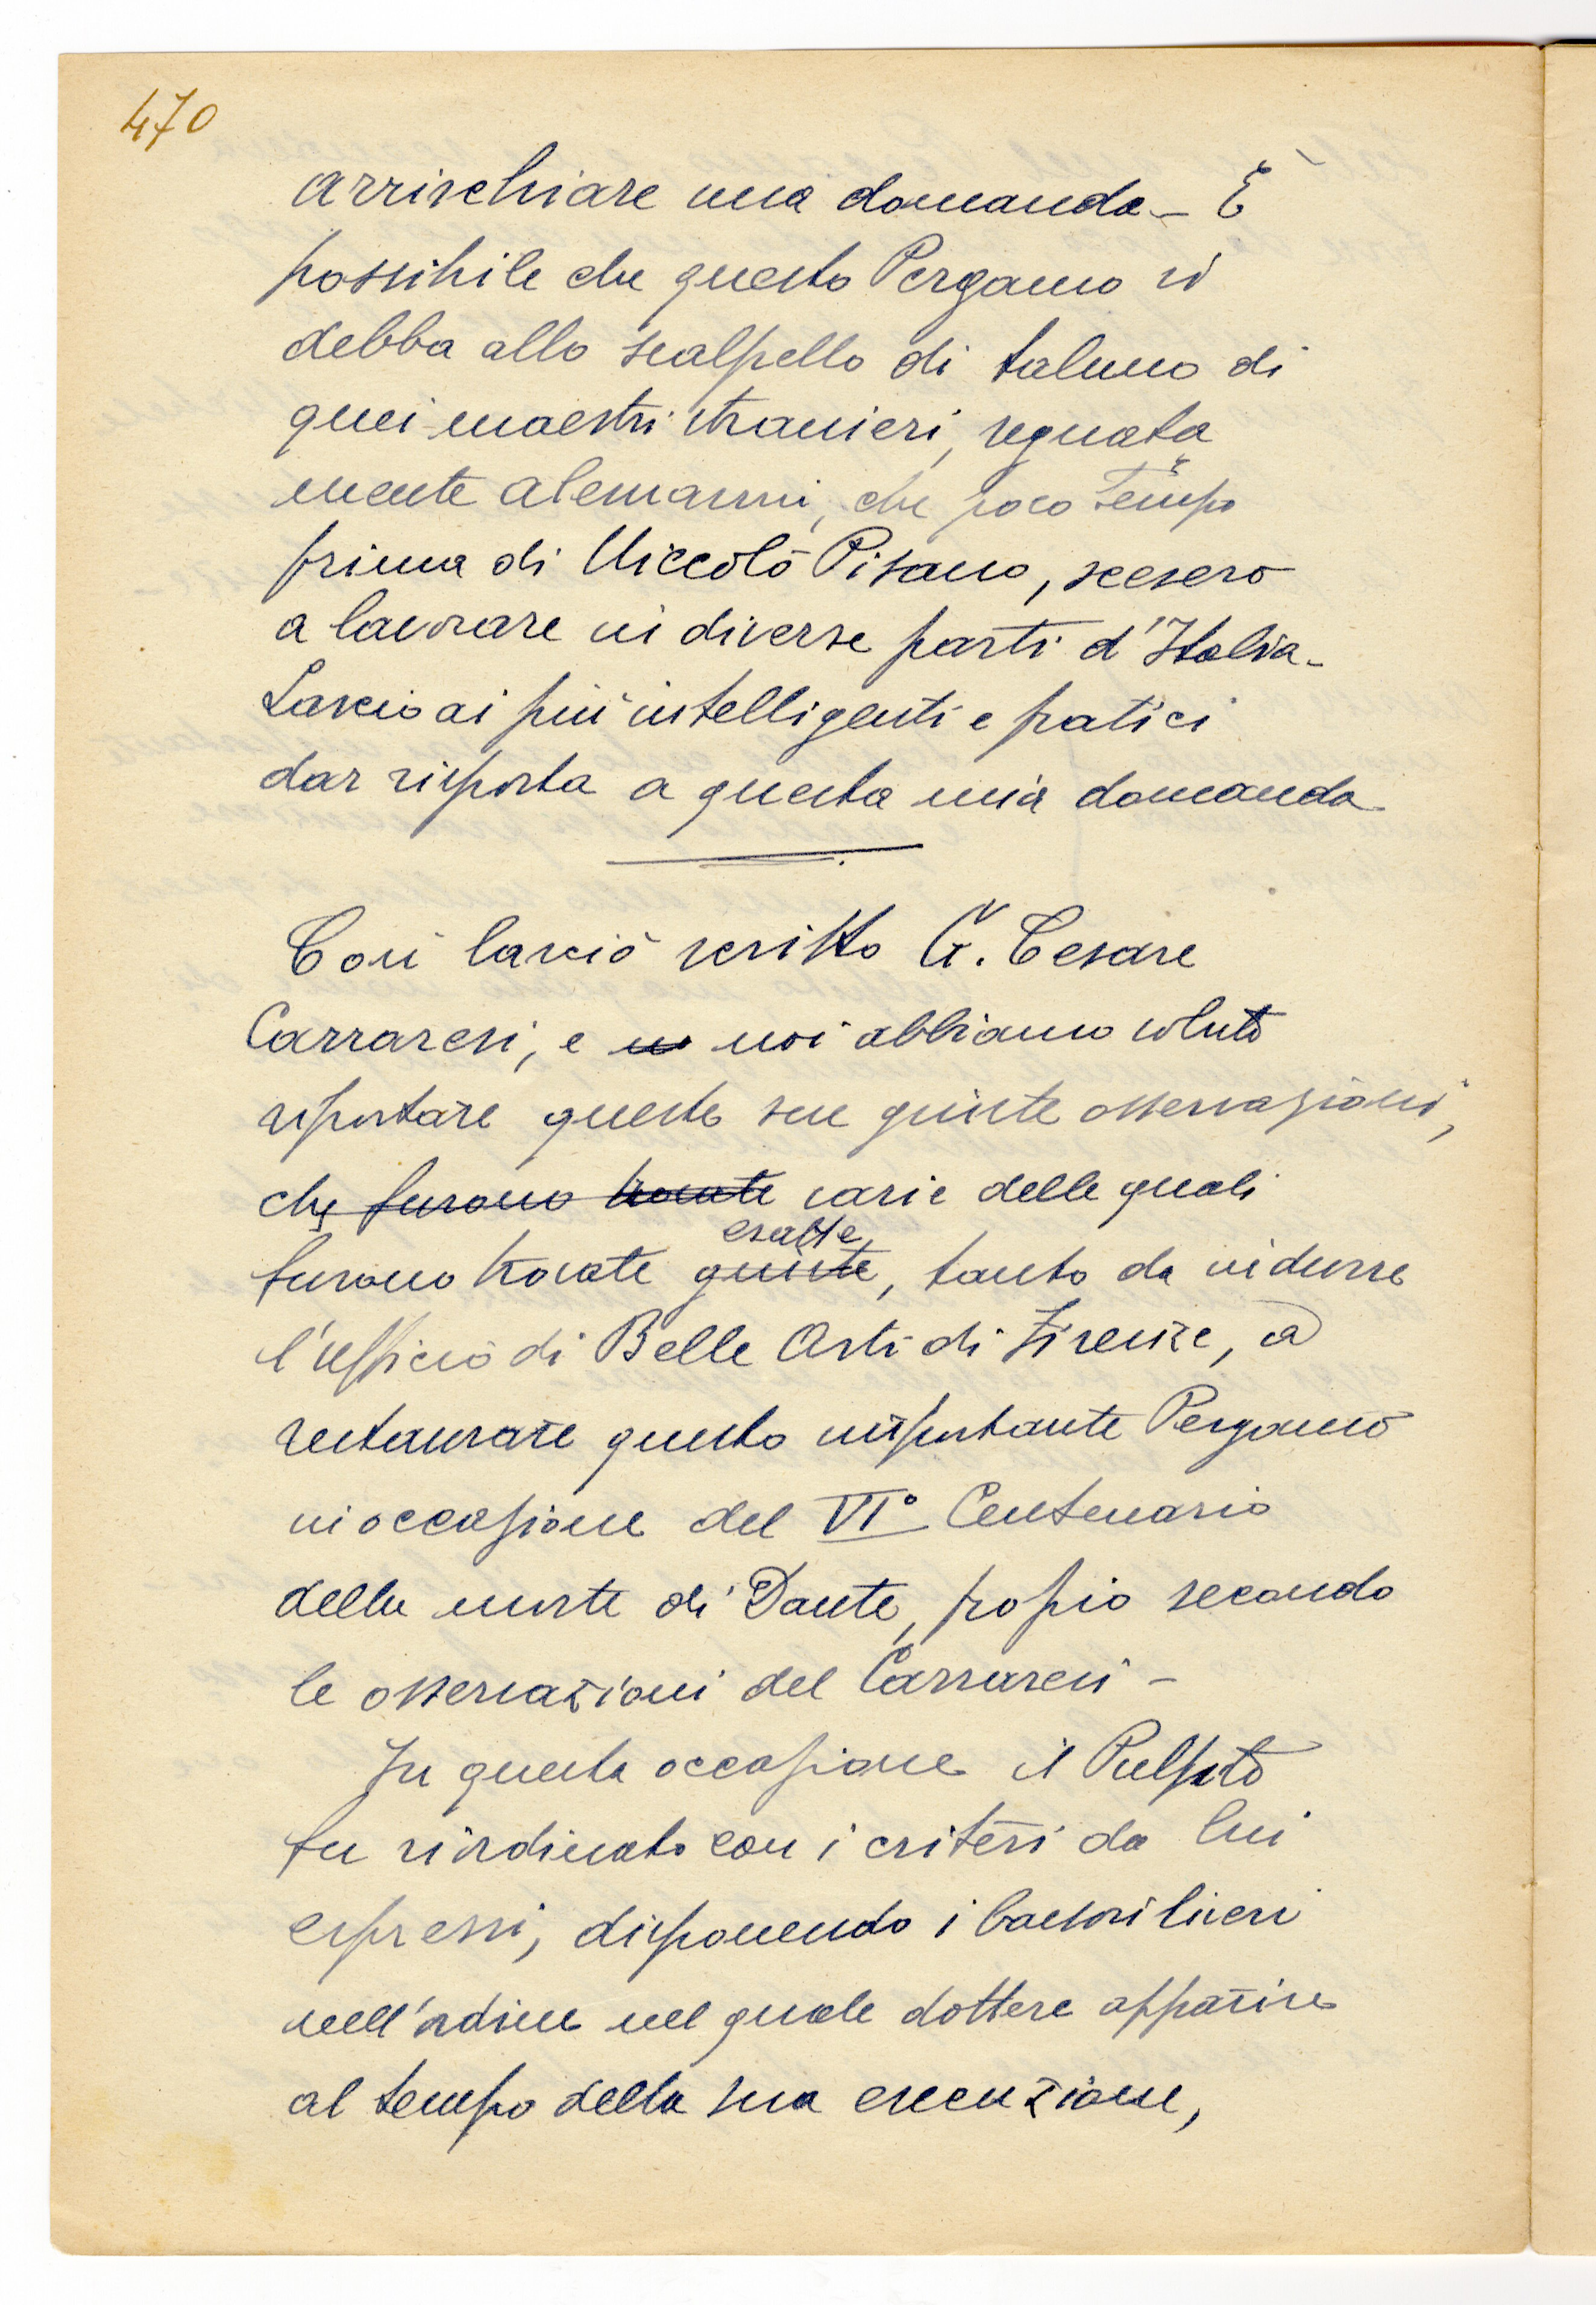 470
arrischiare una domanda - È
possibile che questo Pergamo si
debba allo scalpello di taluno di
quei maestri stranieri, segnata
mente alemanni, che poco tempo
prima di Niccolò Pisano, scesero
a lavorare in diverse parti d'Italia -
Lascio ai più intelligenti e pratici
dar risposta a questa mia domanda
Così lasciò scritto G. Cesare
Carraresi, e n noi abbiamo voluto
riportare queste sue giuste osservazioni,
che furono trovate varie delle quali
esatte
furono trovate giuste, tanto da indurre
l'ufficio di Belle Arti di Firenze, a
restaurare questo importante Pergamo
in occasione del VI° Centenario
della morte di Dante, propio secondo
le osservazioni del Carraresi -
In questa occasione il Pulpito
fu riordinato con i criteri da lui
espressi, disponendo i bassorilievi
nell'ordine nel quale dottere apparire
al tempo della sua esecuzione,